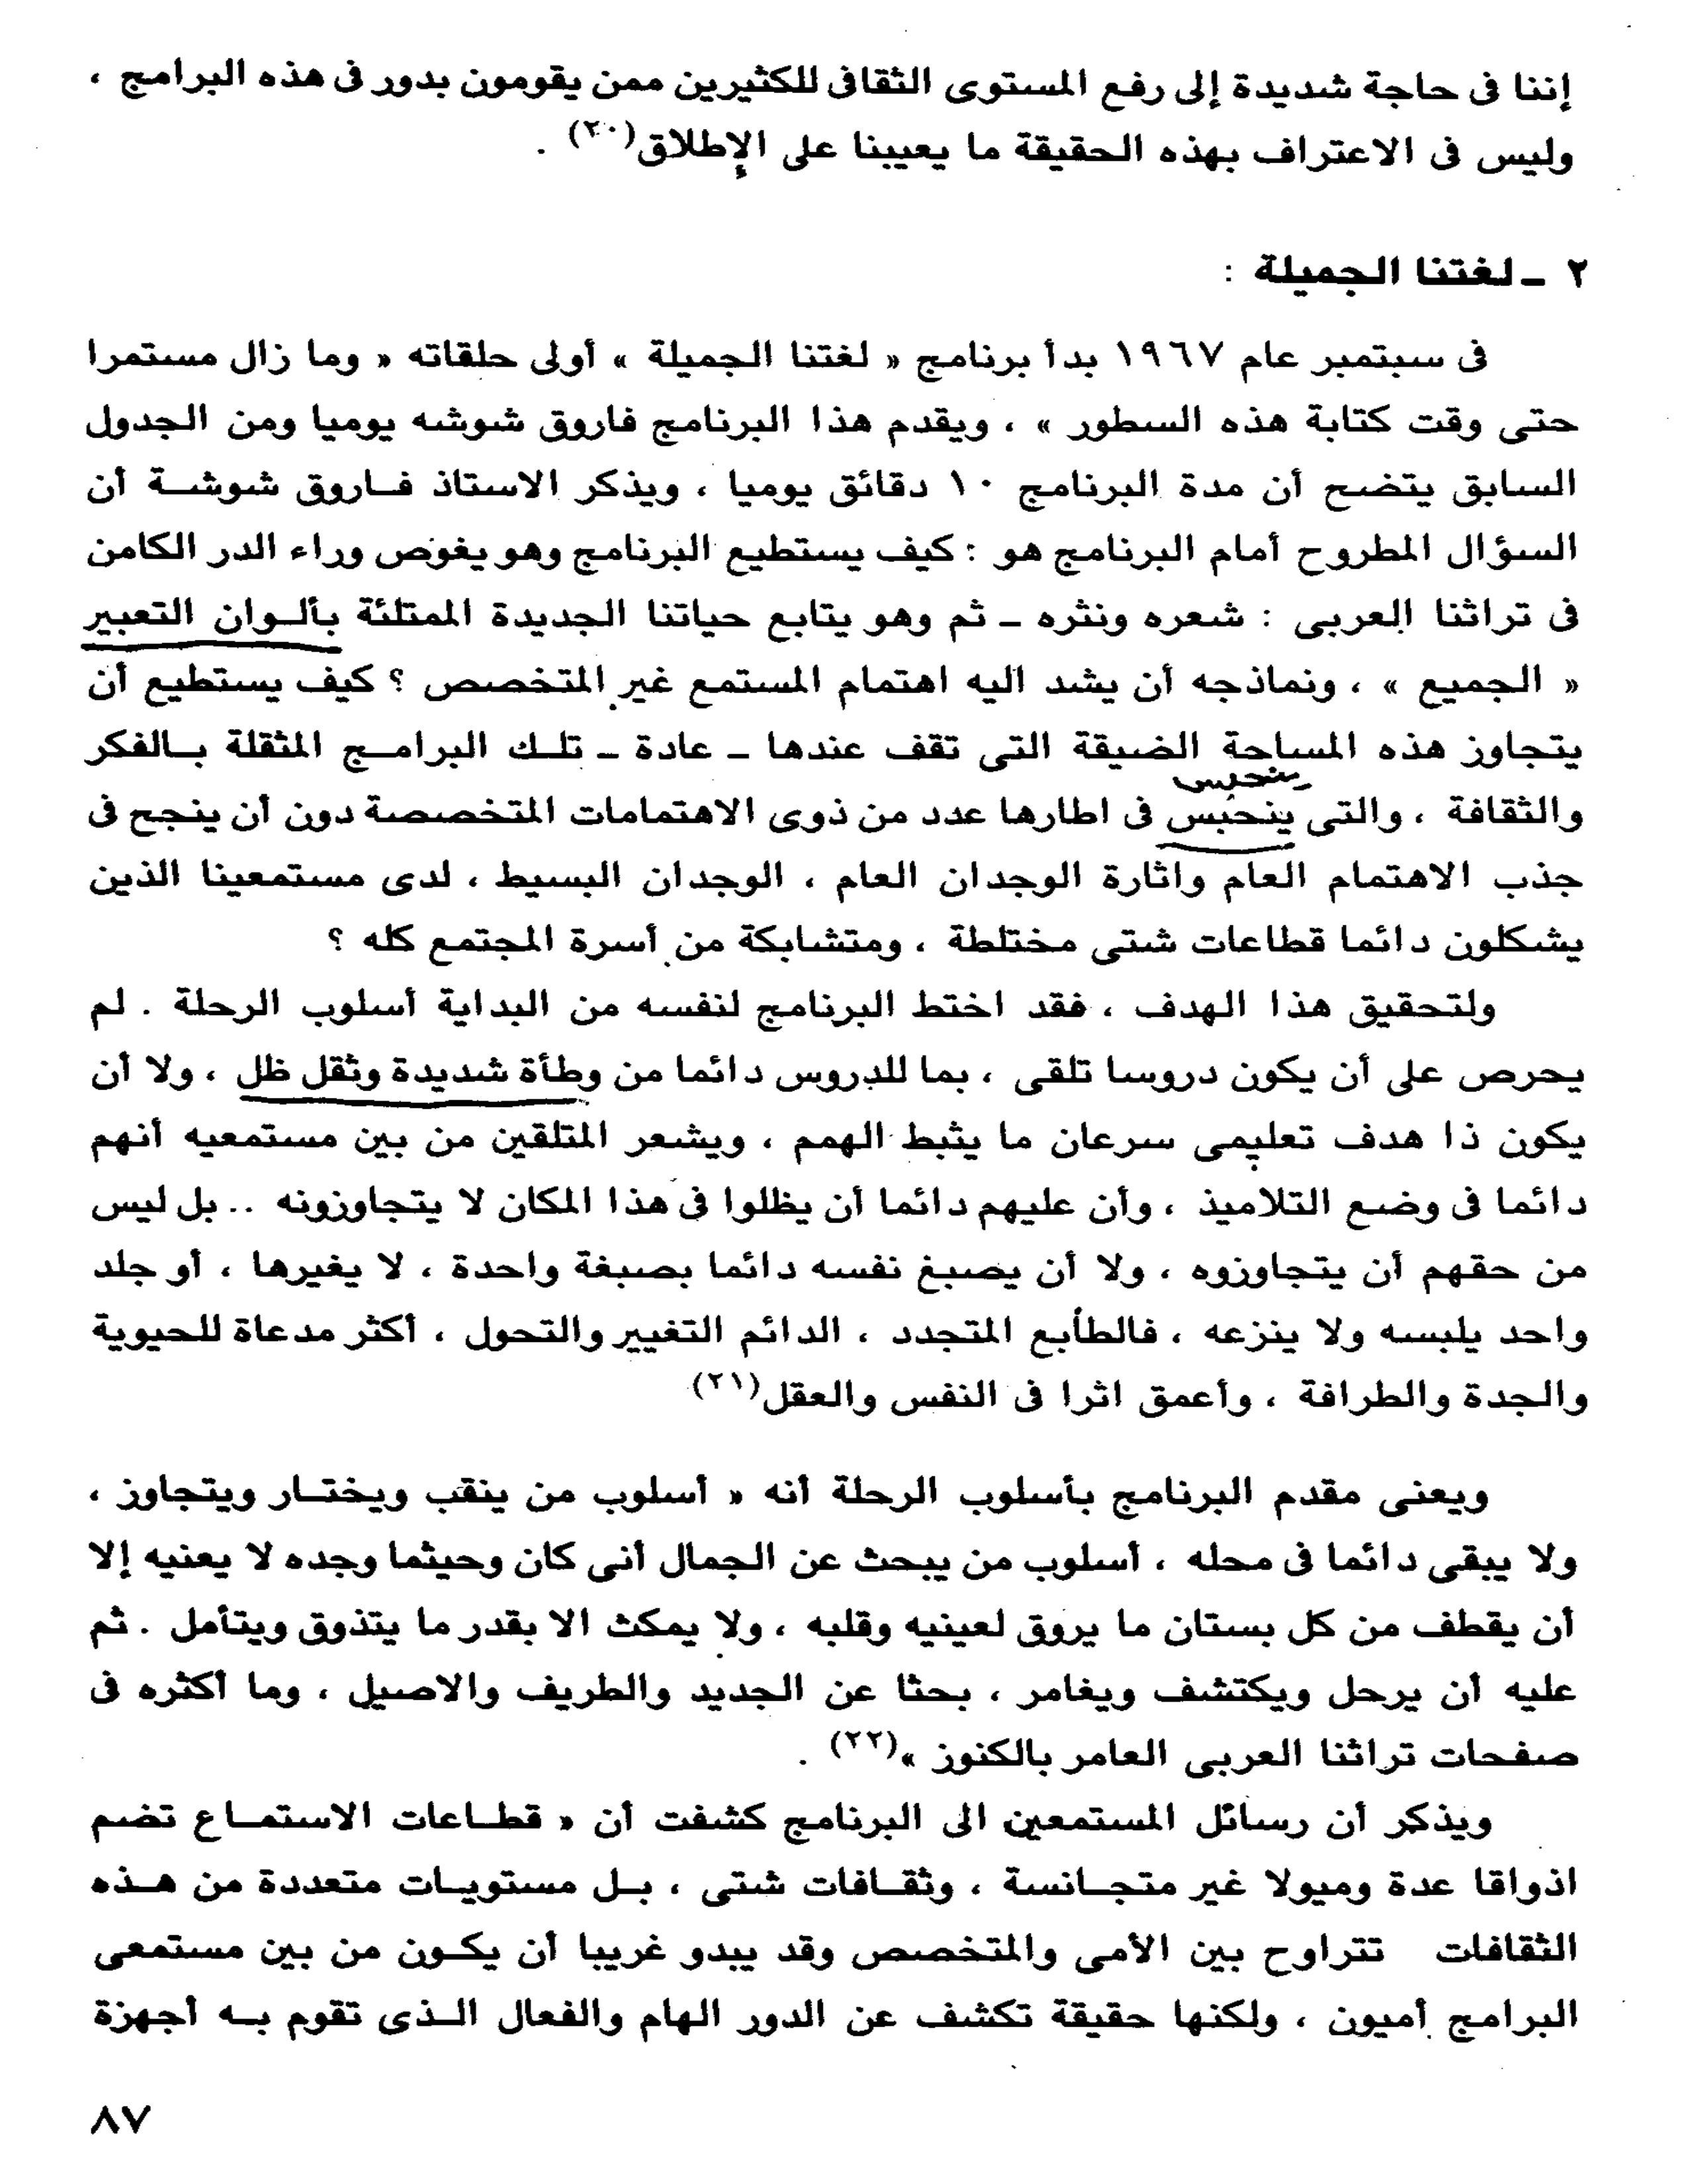 إننا فى حاجة شديدة إلى رفع المستوى الثقافى للكثيرين ممن يقومون بدور فى هذه البرامج ،
وليس فى الاعتراف بهذه الحقيقة ما يعيبنا على الإطلاق(٢٠) .
٢ ـ لغتنا الجميلة :
فى سبتمبر عام ١٩٦٧ بدأ برنامج « لغتنا الجميلة » أولى حلقاته « وما زال مستمرا
حتى وقت كتابة هذه السطور » ، ويقدم هذا البرنامج فاروق شوشه يوميا ومن الجدول
السابق يتضح أن مدة البرنامج ١٠ دقائق يوميا ، ويذكر الاستاذ فـاروق شوشـة أن
السؤال المطروح أمام البرنامج هو : كيف يستطيع البرنامج وهو يغوص وراء الدر الكامن
فى تراثنا العربى : شعره ونثره ـ ثم وهو يتابع حياتنا الجديدة الممتلئة بألـوان التعبير
« الجميع » ، ونماذجه أن يشد اليه اهتمام المستمع غير المتخصص ؟ كيف يستطيع أن
يتجاوز هذه المساحة الضيقة التى تقف عندها ـ عادة ـ تلـك البرامـج المثقلة بـالفكر
ينحبس
والثقافة ، والتى ينحبس فى اطارها عدد من ذوى الاهتمامات المتخصصة دون أن ينجح فى
جذب الاهتمام العام واثارة الوجدان العام ، الوجدان البسيط ، لدى مستمعينا الذين
يشكلون دائما قطاعات شتى مختلطة ، ومتشابكة من أسرة المجتمع كله ؟
ولتحقيق هذا الهدف ، فقد اختط البرنامج لنفسه من البداية أسلوب الرحلة . لم
يحرص على أن يكون دروسا تلقى ، بما للدروس دائما من وطأة شديدة وثقل ظل ، ولا أن
يكون ذا هدف تعليمى سرعان ما يثبط الهمم ، ويشعر المتلقين من بين مستمعيه أنهم
دائما فى وضع التلاميذ ، وأن عليهم دائما أن يظلوا فى هذا المكان لا يتجاوزونه .. بل ليس
من حقهم أن يتجاوزوه ، ولا أن يصبغ نفسه دائما بصبغة واحدة ، لا يغيرها ، أو جلد
واحد يلبسه ولا ينزعه ، فالطابع المتجدد ، الدائم التغيير والتحول ، أكثر مدعاة للحيوية
والجدة والطرافة ، وأعمق اثرا فى النفس والعقل(٢١)
ويعنى مقدم البرنامج بأسلوب الرحلة أنه « أسلوب من ينقب ويختـار ويتجاوز ،
ولا يبقى دائما فى محله ، أسلوب من يبحث عن الجمال أنى كان وحيثما وجده لا يعنيه إلا
أن يقطف من كل بستان ما يروق لعينيه وقلبه ، ولا يمكث الا بقدر ما يتذوق ويتأمل . ثم
عليه أن يرحل ويكتشف ويغامر ، بحثا عن الجديد والطريف والاصيل ، وما أكثره فى
صفحات تراثنا العربى العامر بالكنوز »(٢٢) .
ويذكر أن رسائل المستمعين الى البرنامج كشفت أن « قطـاعات الاستمـاع تضم
اذواقا عدة وميولا غير متجـانسة ، وثقـافات شتى ، بـل مستويـات متعددة من هـذه
الثقافات تتراوح بين الأمى والمتخصص وقد يبدو غريبا أن يكـون من بين مستمعى
البرامج أميون ، ولكنها حقيقة تكشف عن الدور الهام والفعال الـذى تقوم بـه أجهزة
٨٧